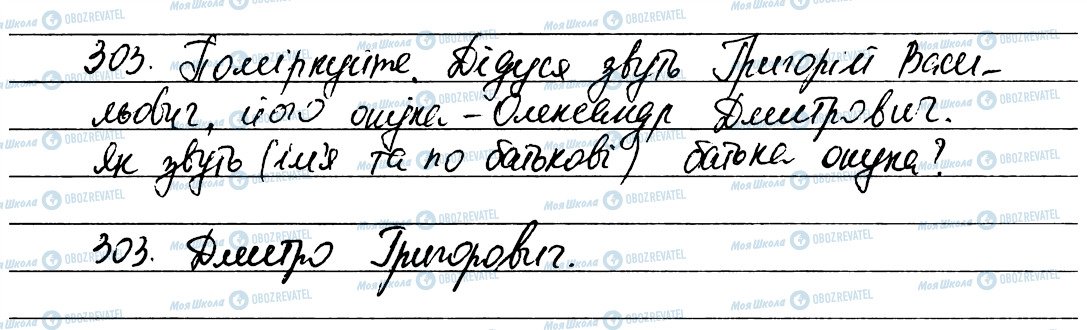 303. Поміркуйте. Дідуся звуть Григорій Васи-
льович, його онука – Олександр Дмитрович.
Як звуть (ім'я та по батькові) батька онука?
303. Дмитро Григорович.